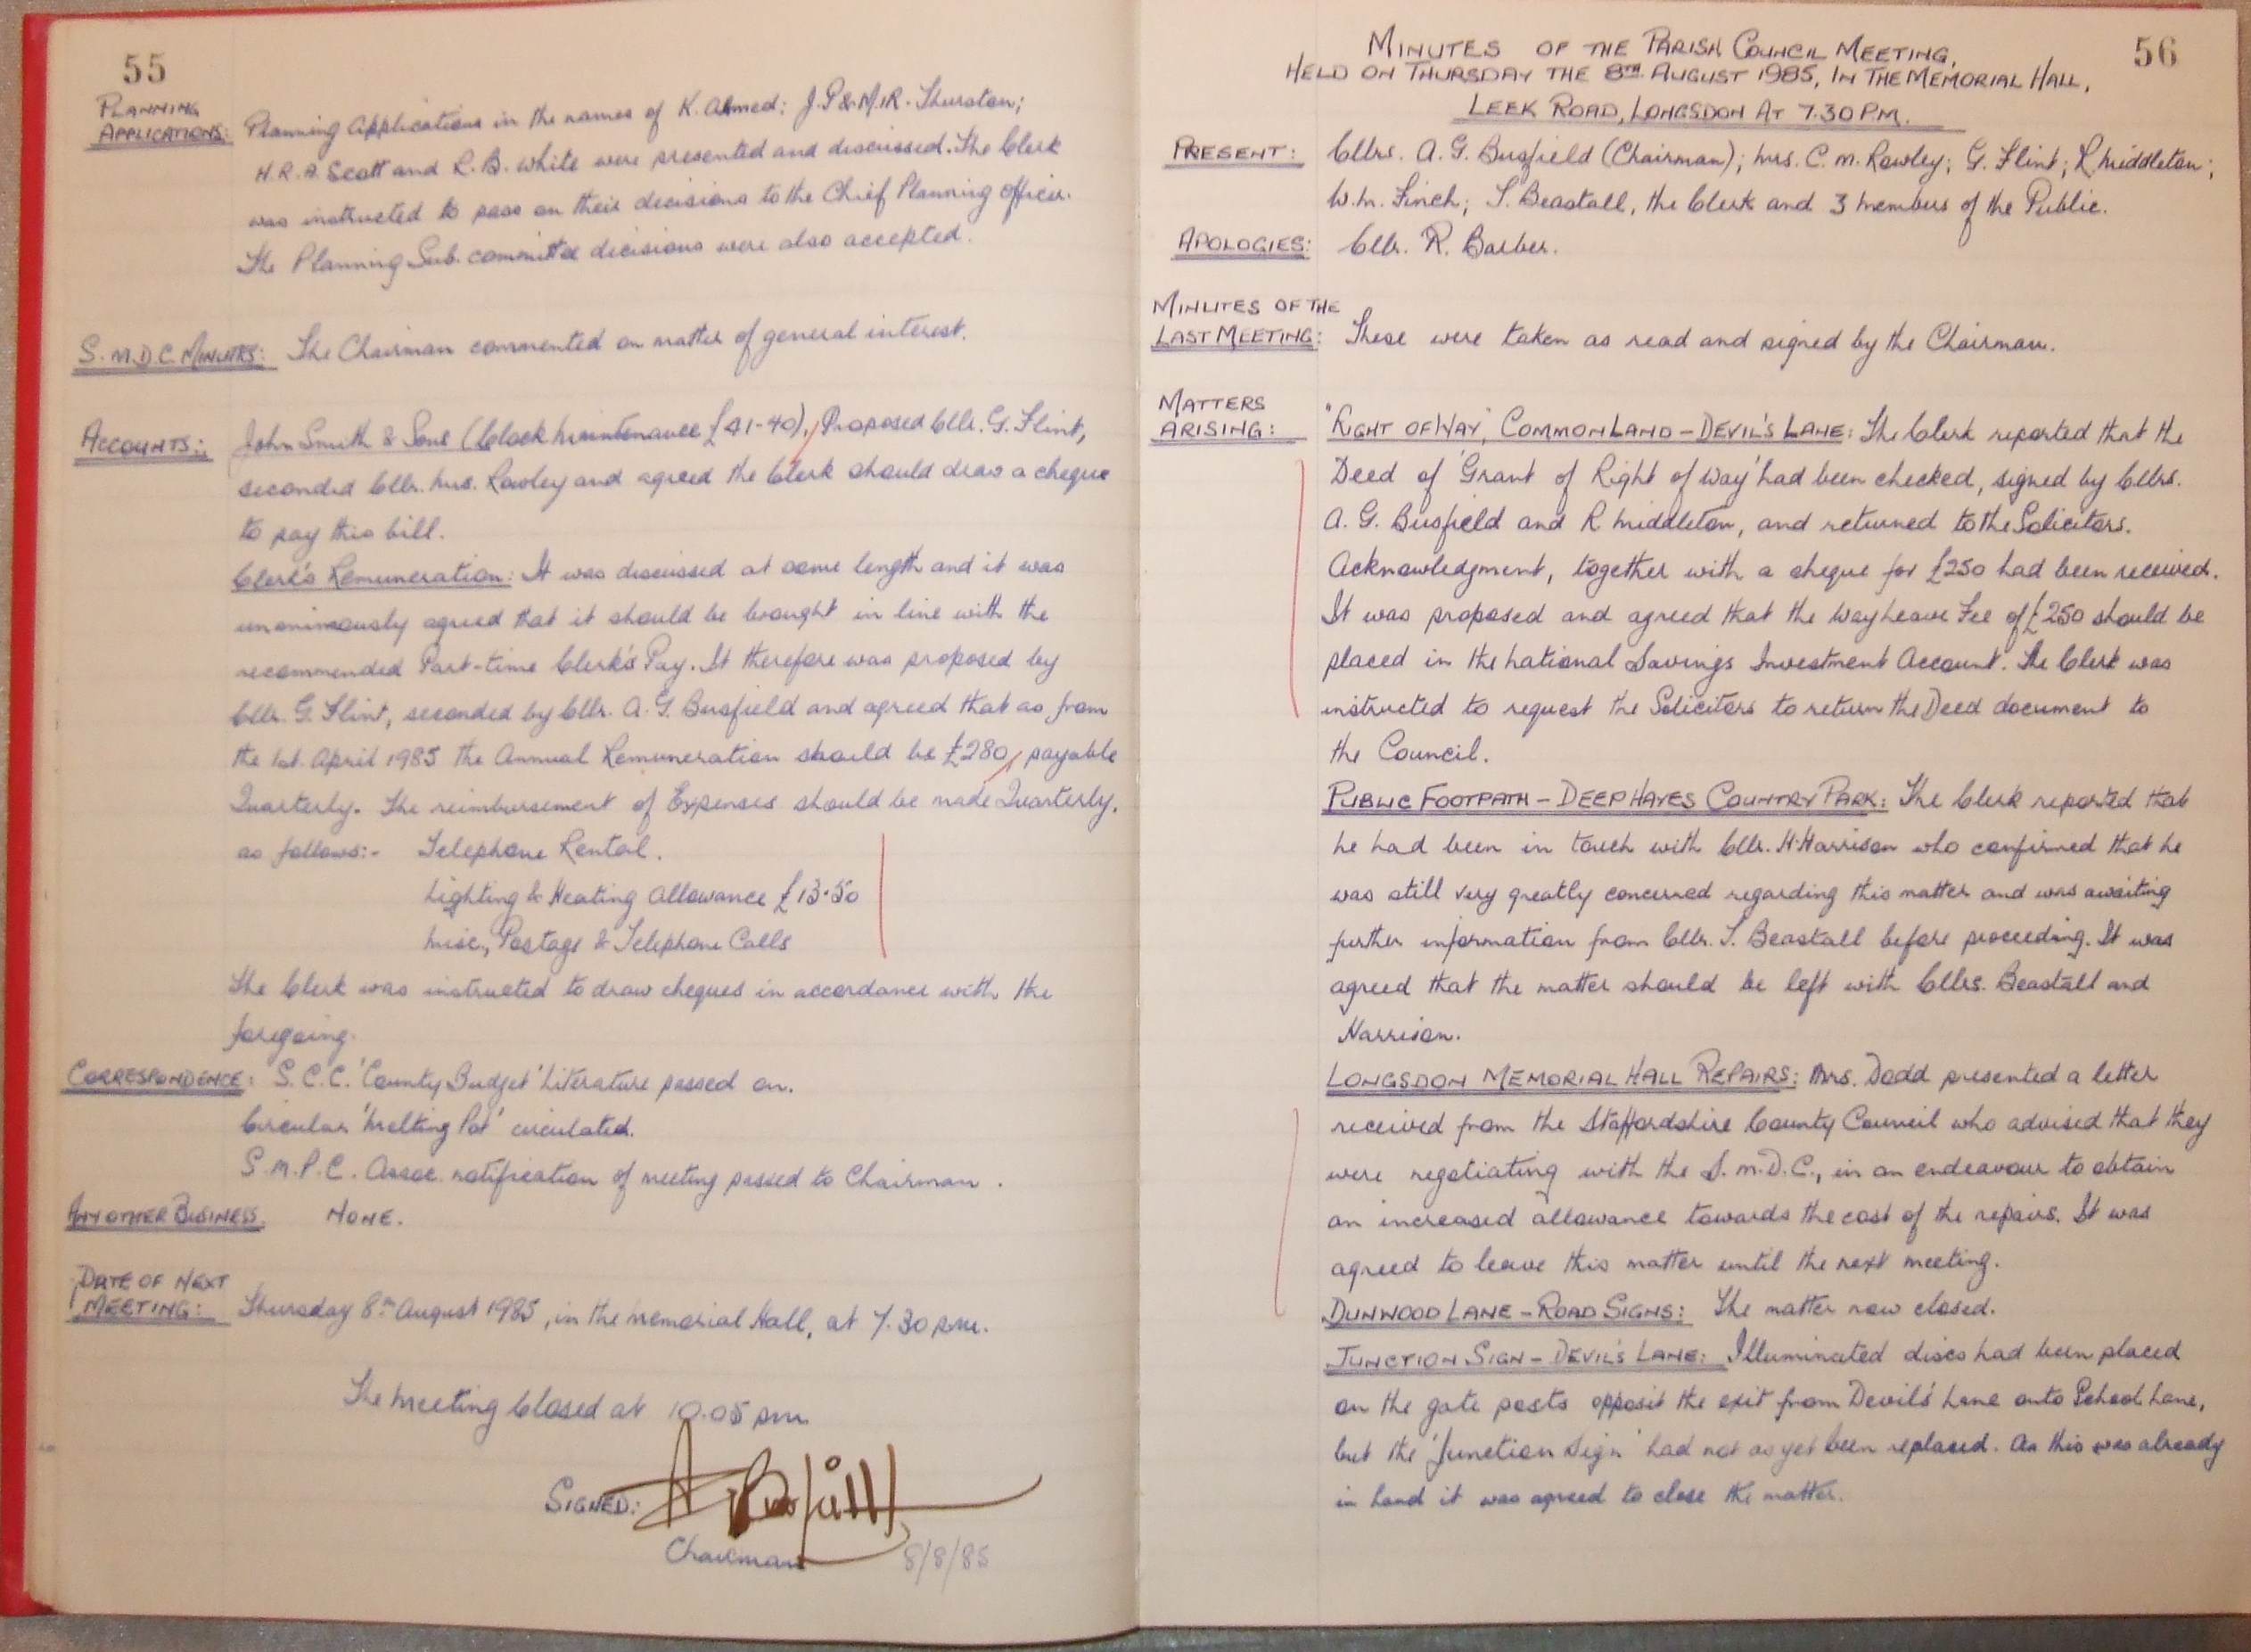 55
PLANNING
APPLICATIONS: Planning Applications in the names of K. Ahmed: J.P & M.R. Thurston;
H.R.A. Scott and R.B. White were presented and discussed. The Clerk
was instructed to pass on their decisions to the Chief Planning Officer.
The Planning Sub. committee decisions were also accepted.
S.M.D.C. MINUTES: The Chairman commented on matter of general interest.
ACCOUNTS: John Smith & Sons (Clock Maintenance £41-40), Proposed Cllr. G. Flint,
seconded Cllr. Mrs. Rowley and agreed the Clerk should draw a cheque
to pay this bill.
Clerk's Remuneration: It was discussed at some length and it was
unanimously agreed that it should be brought in line with the
recommended Part-time Clerk's Pay. It therefore was proposed by
Cllr. G. Flint, seconded by Cllr. A.G. Busfield and agreed that as from
the 1st. April 1985 the Annual Remuneration should be £280, payable
Quarterly. The reimbursement of Expenses should be made Quarterly,
as follows:- Telephone Rental.
Lighting & Heating Allowance £13.50
Misc, Postage & Telephone Calls
The Clerk was instructed to draw cheques in accordance with the
foregoing.
CORRESPONDENCE: S.C.C. 'County Budget' Literature passed on.
Circular 'Melting Pot' circulated.
S.M.P.C. Assoc. notification of meeting passed to Chairman.
ANY OTHER BUSINESS. NONE.
DATE OF NEXT
MEETING: Thursday 8th August 1985, in the Memorial Hall, at 7.30 pm.
The Meeting Closed at 10.05 pm
SIGNED: A Busfield
Chairman 8/8/85
56
MINUTES OF THE PARISH COUNCIL MEETING,
HELD ON THURSDAY THE 8TH AUGUST 1985, IN THE MEMORIAL HALL,
LEEK ROAD, LONGSDON AT 7.30 P.M.
PRESENT: Cllrs. A.G. Busfield (Chairman); Mrs. C.M. Rowley; G. Flint; R. Middleton;
W.M. Finch; T. Beastall, the Clerk and 3 members of the Public.
APOLOGIES: Cllr. R. Barber.
MINUTES OF THE
LAST MEETING: These were taken as read and signed by the Chairman.
MATTERS
ARISING: "RIGHT OF WAY", COMMON LAND - DEVIL'S LANE: The Clerk reported that the
Deed of 'Grant of Right of Way' had been checked, signed by Cllrs.
A.G. Busfield and R Middleton, and returned to the Solicitors.
Acknowledgment, together with a cheque for £250 had been received.
It was proposed and agreed that the Wayleave Fee of £250 should be
placed in the National Savings Investment Account. The Clerk was
instructed to request the Solicitors to return the Deed document to
the Council.
PUBLIC FOOTPATH - DEEP HAYES COUNTRY PARK: The Clerk reported that
he had been in touch with Cllr. H. Harrison who confirmed that he
was still very greatly concerned regarding this matter and was awaiting
further information from Cllr. T. Beastall before proceeding. It was
agreed that the matter should be left with Cllrs. Beastall and
Harrison.
LONGSDON MEMORIAL HALL REPAIRS: Mrs. Dodd presented a letter
received from the Staffordshire County Council who advised that they
were negotiating with the S.M.D.C., in an endeavour to obtain
an increased allowance towards the cost of the repairs. It was
agreed to leave this matter until the next meeting.
DUNWOOD LANE - ROAD SIGNS: The matter now closed.
JUNCTION SIGN - DEVIL'S LANE: Illuminated discs had been placed
on the gate posts opposit the exit from Devil's Lane onto School Lane,
but the 'Junction Sign' had not as yet been replaced. As this was already
in hand it was agreed to close the matter.